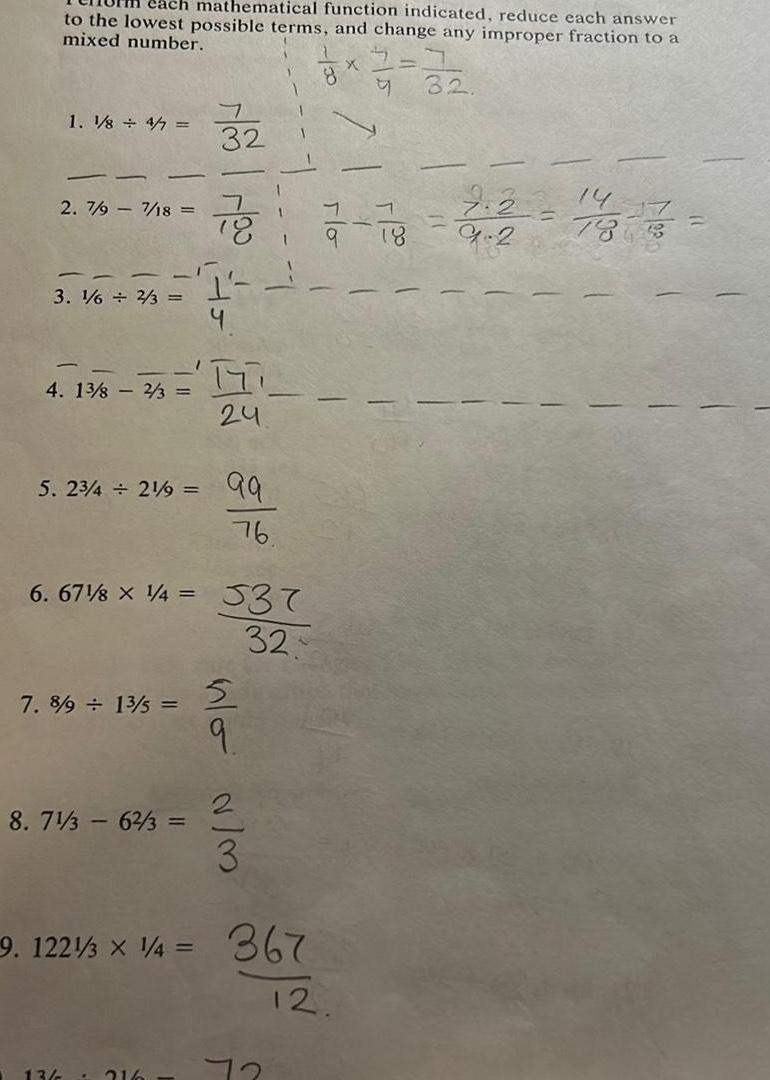 each mathematical function indicated, reduce each answer
to the lowest possible terms, and change any improper fraction to a
mixed number.
1/8 × 7/4 = 7/32.
1. 1/8 ÷ 4/7 = 7/32
2. 7/9 − 7/18 = 7/18
7/9 − 7/18 = 7·2/9·2 = 14/18 − 7/18 =
3. 1/6 ÷ 2/3 = 1/4.
4. 1 3/8 − 2/3 = 17/24
5. 2 3/4 ÷ 2 1/9 = 99/76.
6. 67 1/8 × 1/4 = 537/32.
7. 8/9 ÷ 1 3/5 = 5/9.
8. 7 1/3 − 6 2/3 = 2/3
9. 122 1/3 × 1/4 = 367/12.
72